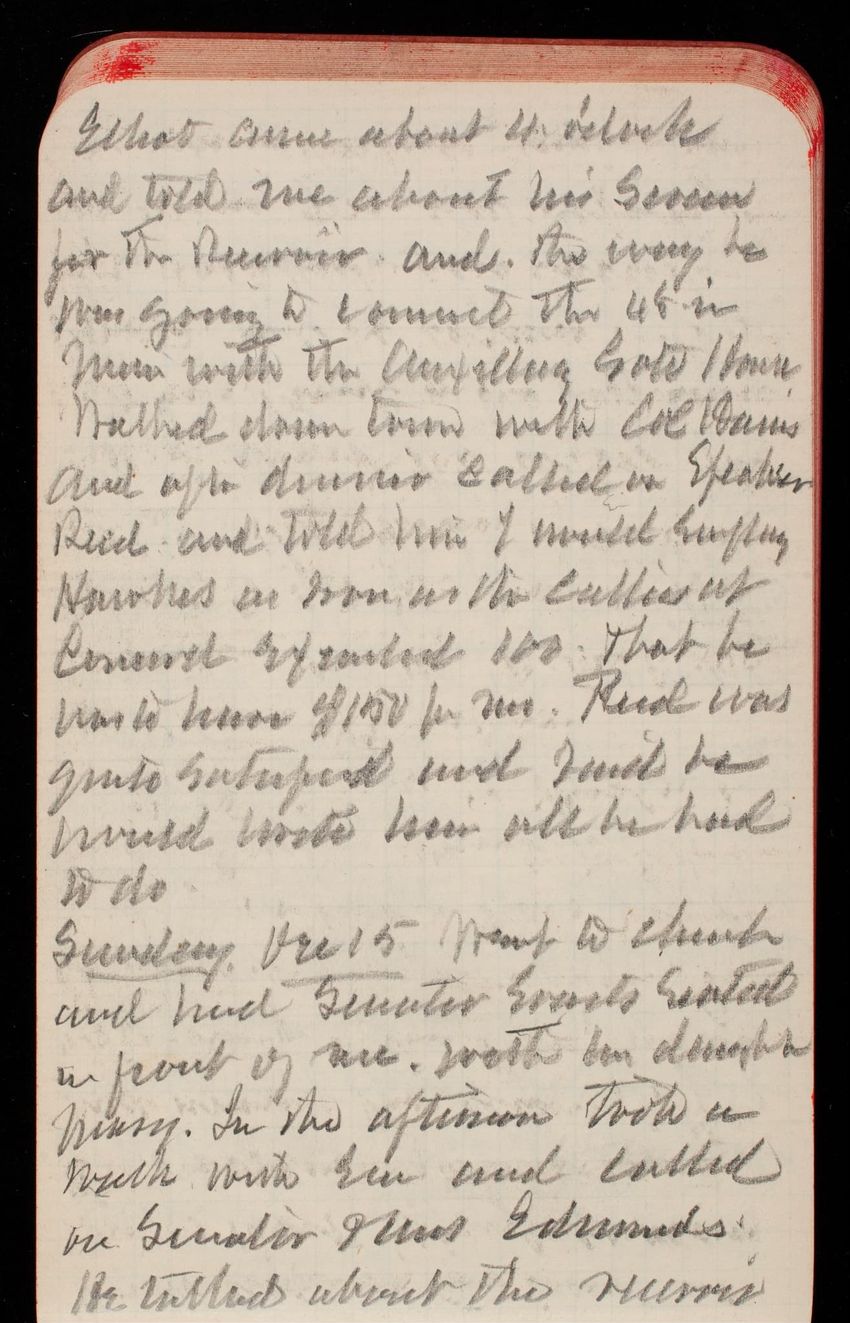 Elliot came about 4. o'clock
and told me about his Screen
for the Reservoir. and. the way he
was going to connect the 48 in
Main with the Auxilliary Gate House
Walked down town with Col
And after dinner called on Speaker
Reed and told him I would Employ
Hawkes as soon as the
Council 100. That he
was to have $150 for me. Reed was
quite Satisfied and said he
would write him all he had
to do
Sunday. Dec 15 Went to church
and had Senator Evarts Seated
in front of me. with his daughter
Mary. In the afternoon took a
Walk with Em and called
on Senator Edmunds.
He talked about the reservoir